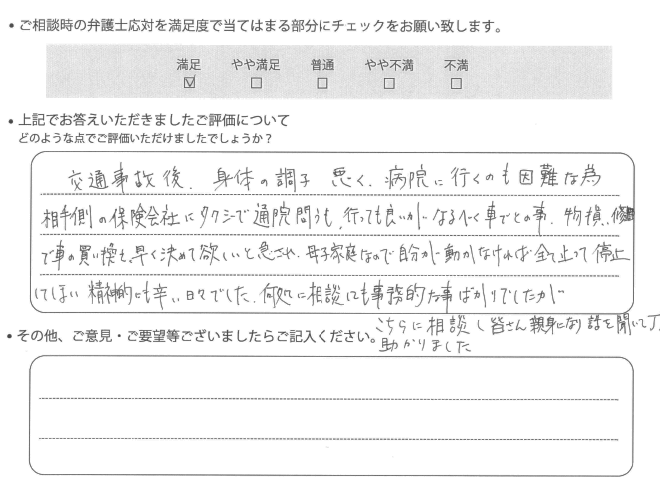 • ご相談時の弁護士応対を満足度で当てはまる部分にチェックをお願い致します。
満足 やや満足 普通 やや不満 不満
☑ □ □ □ □
• 上記でお答えいただきましたご評価について
どのような点でご評価いただけましたでしょうか?
交通事故後、身体の調子 悪く、病院に行くのも困難な為
相手側の保険会社にタクシーで通院問うも、行っても良いが なるべく車でとの事、物損、修理
で車の買い換えも、早く決めて欲しいと急され、母子家庭なので自分が動かなければ全て止って停止
してしまい 精神的にも辛い日々でした。何処に相談しても事務的な事ばかりでしたが
こちらに相談し皆さん親身になり 話を聞いて
助かりました
• その他、ご意見・ご要望等ございましたらご記入ください。